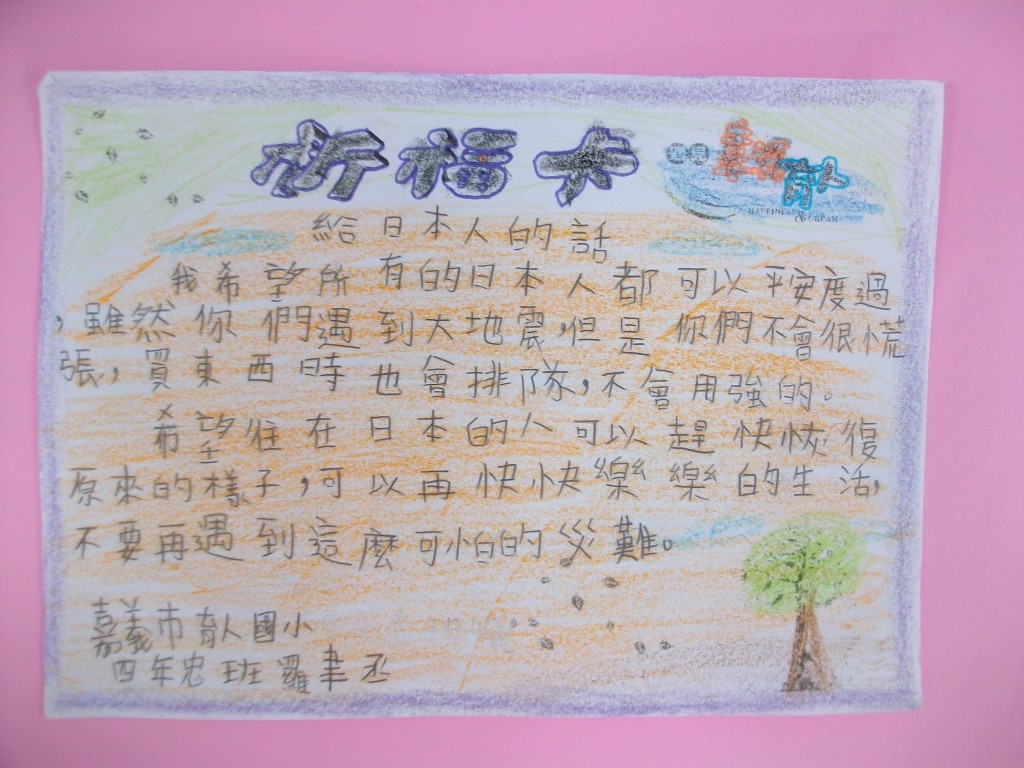 祈福卡
幸福育人
HAPPINESS & URPAN
給日本人的話
我希望所有的日本人都可以平安度過
，雖然你們遇到大地震，但是你們不會很慌
張，買東西時也會排隊，不會用強的。
希望住在日本的人可以趕快恢復
原來的樣子，可以再快快樂樂的生活，
不要再遇到這麼可怕的災難。
嘉義市育人國小
四年忠班羅聿丞